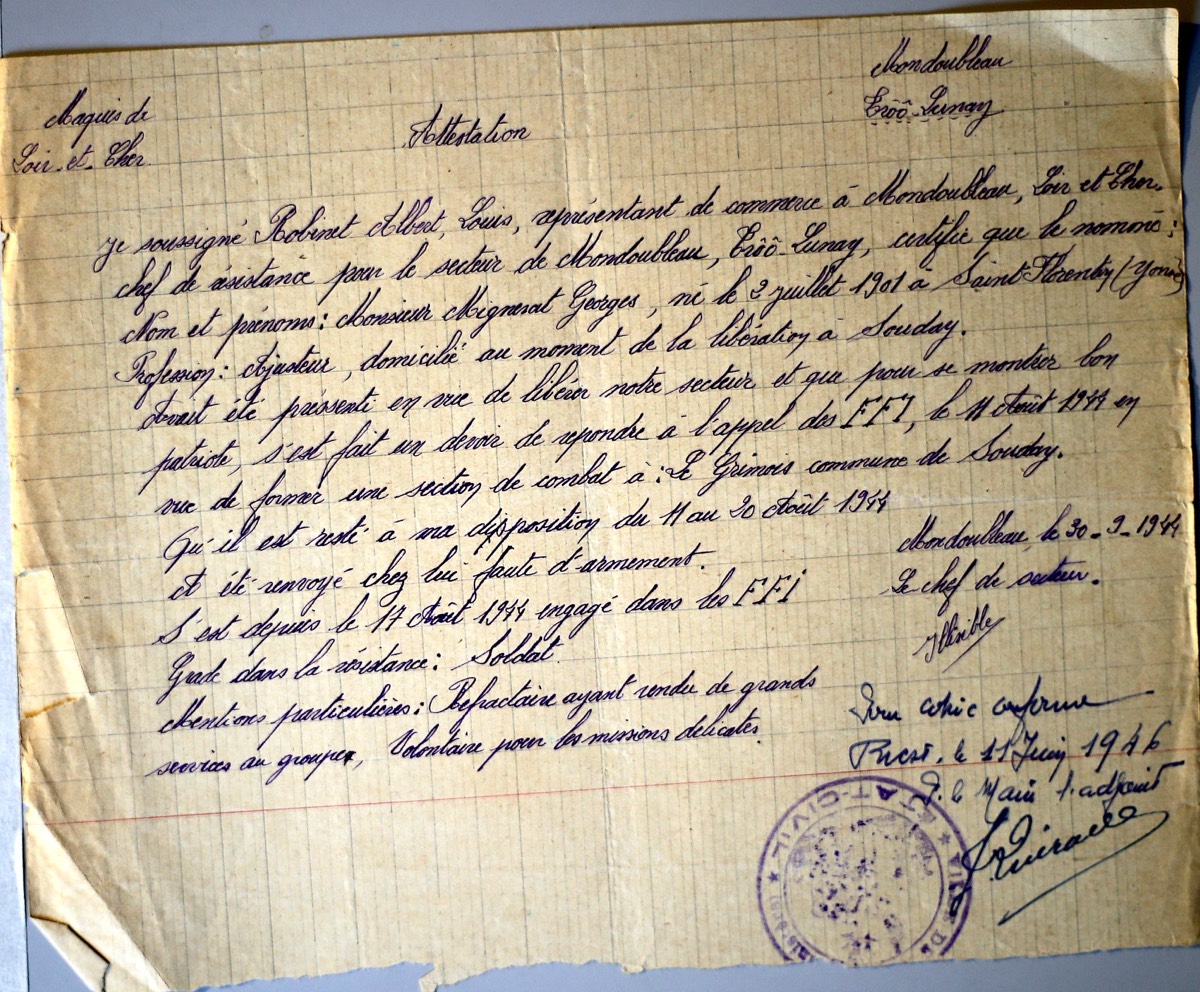 Maquis de
Loir-et-Cher
Attestation
Mondoubleau
Trôô-Lunay
Je soussigné Robinet Albert, Louis, représentant de commerce à Mondoubleau, Loir et Cher.
chef de résistance pour le secteur de Mondoubleau, Trôô-Lunay, certifie que le nommé:
Nom et prénoms: Monsieur Mignerat Georges, né le 2 juillet 1901 à Saint-Florentin (Yonne)
Profession: Ajusteur, domicilié au moment de la libération à Souday.
Avait été préssenti en vue de libérer notre secteur et que pour se montrer bon
patriote, s'est fait un devoir de repondre à l'appel des FFI, le 11 Août 1944 en
vue de former une section de combat à: Le Grimois commune de Souday.
Qu'il est resté à ma disposition du 11 au 20 Août 1944
et été renvoyé chez lui faute d'armement.
S'est depuis le 17 Août 1944 engagé dans les FFI
Grade dans la résistance: Soldat.
Mentions particulières: Réfractaire ayant rendu de grands
services au groupe, Volontaire pour les missions délicates.
Mondoubleau, le 30-9-1944
Le chef de secteur.
Illisible
Pour copie conforme
Brest, le 11 Juin 1946
P. le Maire l'adjoint
ÉTAT-CIVIL
VILLE DE